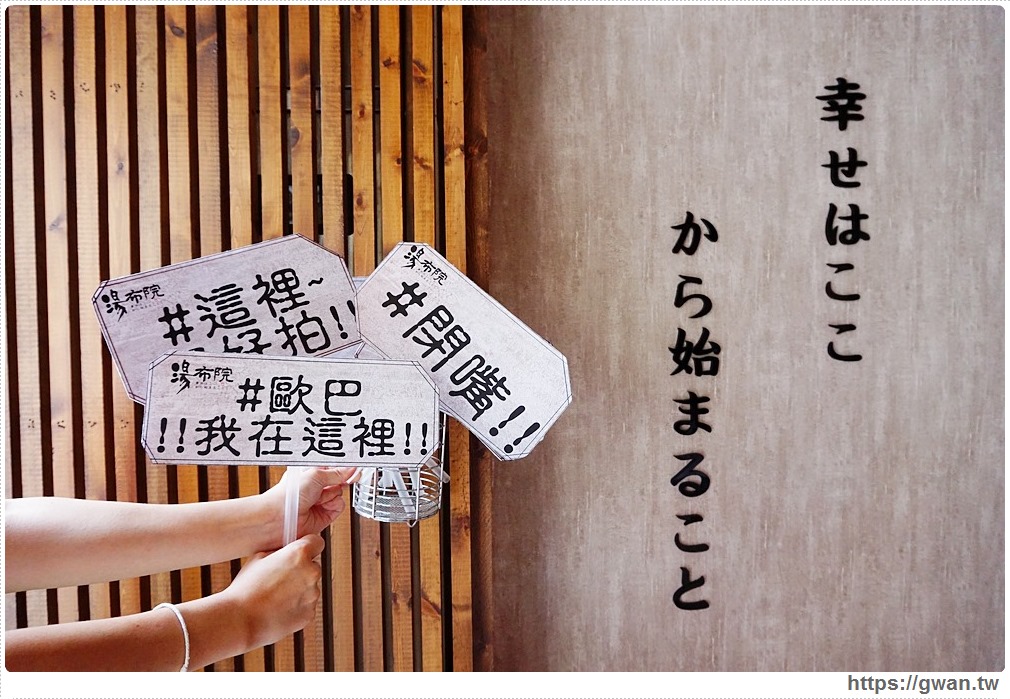 幸せはここ
から始まること
湯布院
#這裡~
好拍!!
湯布院
#閉嘴!!
湯布院
#歐巴
!!我在這裡!!
https://gwan.tw